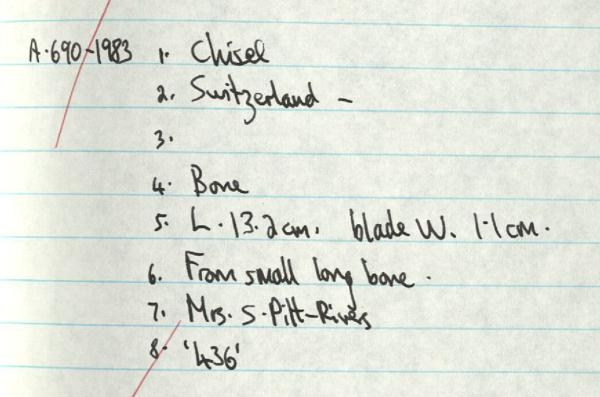 A.690-1983 1. Chisel
2. Switzerland -
3.
4. Bone
5. L. 13.2cm. blade W. 1.1cm.
6. From small long bone.
7. Mrs. S. Pitt-Rivers
8. '436'